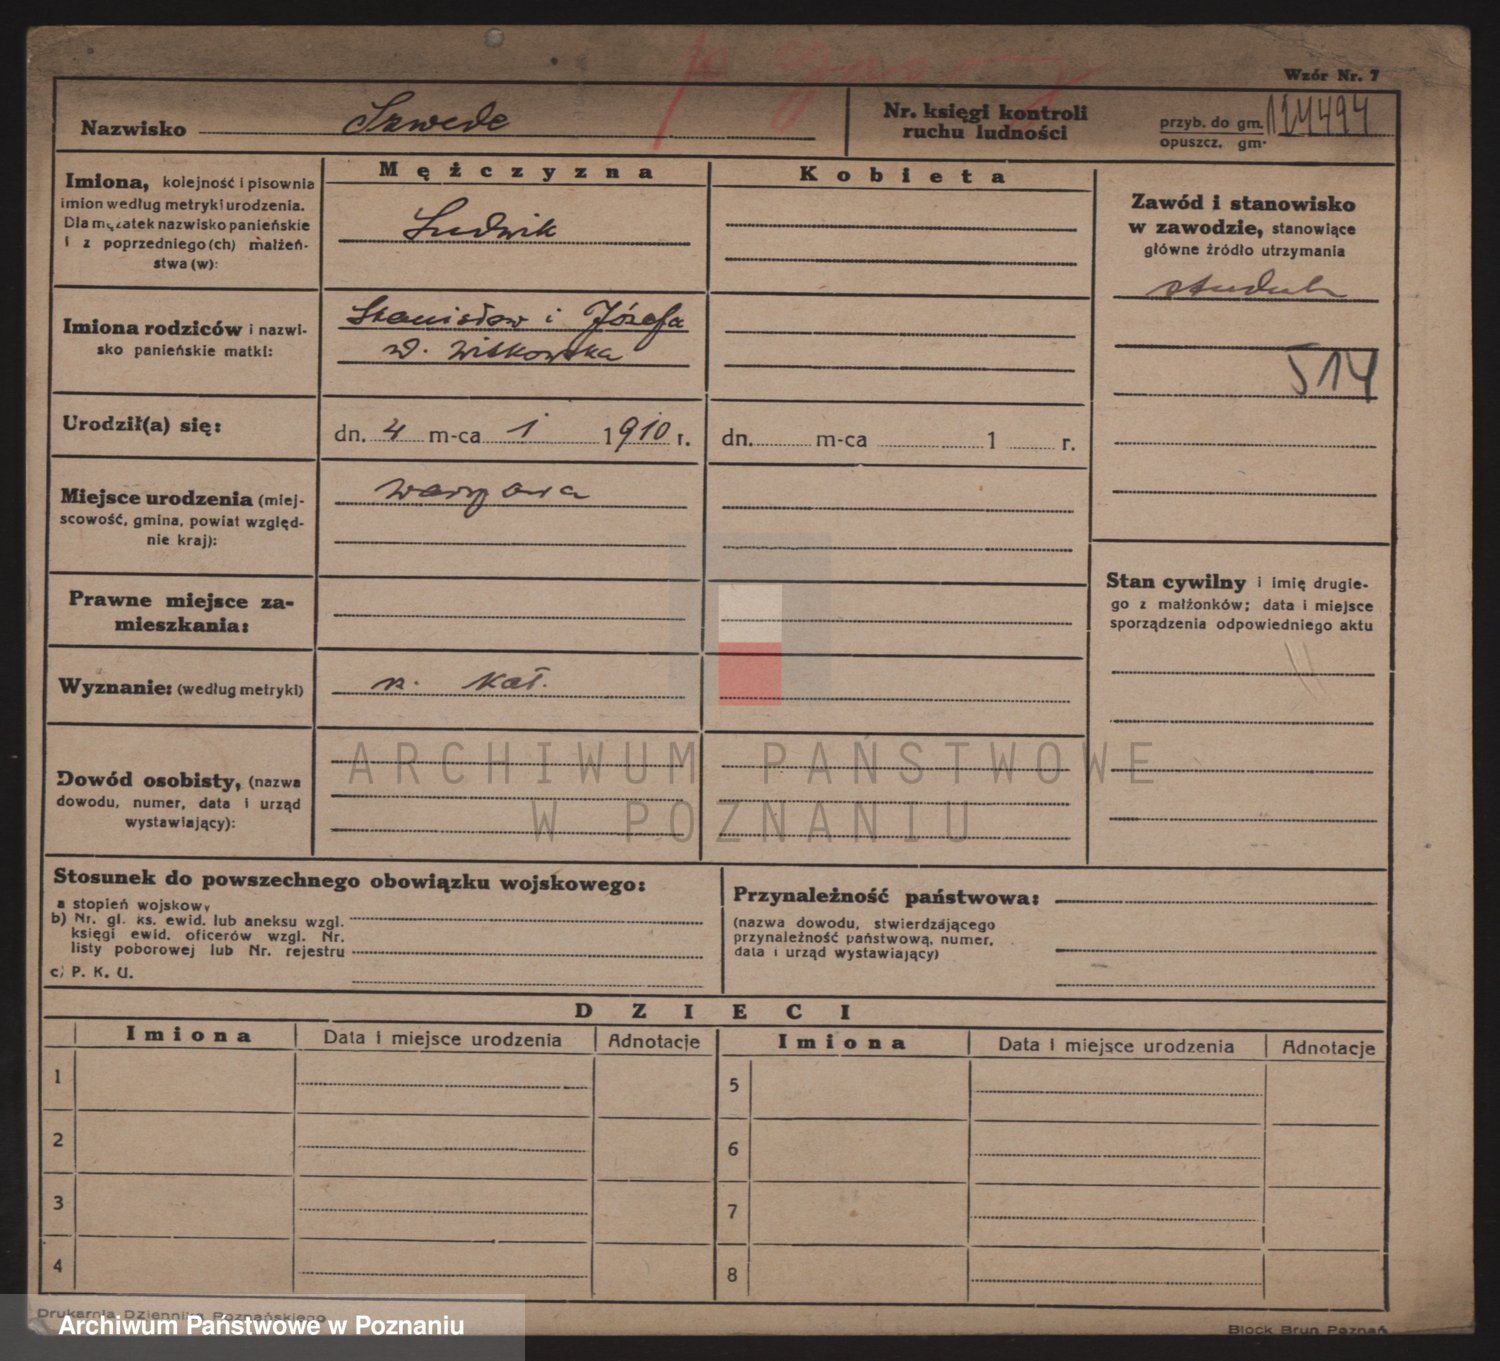 Wzór Nr. 7
Nazwisko Szwede
Nr. księgi kontroli
ruchu ludności
przyb. do gm. 124494
opuszcz. gm.
Mężczyzna
Kobieta
Imiona, kolejność i pisownia
imion według metryki urodzenia.
Dla mężatek nazwisko panieńskie
i z poprzedniego (ch) małżeń-
stwa (w):
Ludwik
Zawód i stanowisko
w zawodzie, stanowiące
główne źródło utrzymania
student
514
Imiona rodziców i nazwi-
sko panieńskie matki:
Stanisław i Józefa
Witkowska
Urodził(a) się:
dn. 4 m-ca 1 1910 r.
dn. m-ca 1 r.
Miejsce urodzenia (miej-
scowość, gmina, powiat względ-
nie kraj):
Warszawa
Prawne miejsce za-
mieszkania:
Stan cywilny i imię drugie-
go z małżonków; data i miejsce
sporządzenia odpowiedniego aktu
Wyznanie: (według metryki)
r. kat.
Dowód osobisty, (nazwa
dowodu, numer, data i urząd
wystawiający):
ARCHIWUM PAŃSTWOWE
W POZNANIU
Stosunek do powszechnego obowiązku wojskowego:
a stopień wojskowy
b) Nr. gl. ks. ewid. lub aneksu wzgl.
księgi ewid. oficerów wzgl. Nr.
listy poborowej lub Nr. rejestru
c) P. K. U.
Przynależność państwowa:
(nazwa dowodu, stwierdzającego
przynależność państwową, numer,
data i urząd wystawiający)
DZIECI
Imiona Data i miejsce urodzenia Adnotacje Imiona Data i miejsce urodzenia Adnotacje
1 5
2 6
3 7
4 8
Drukarnia Dziennika Poznańskiego
Archiwum Państwowe w Poznaniu
Block Brun Poznań